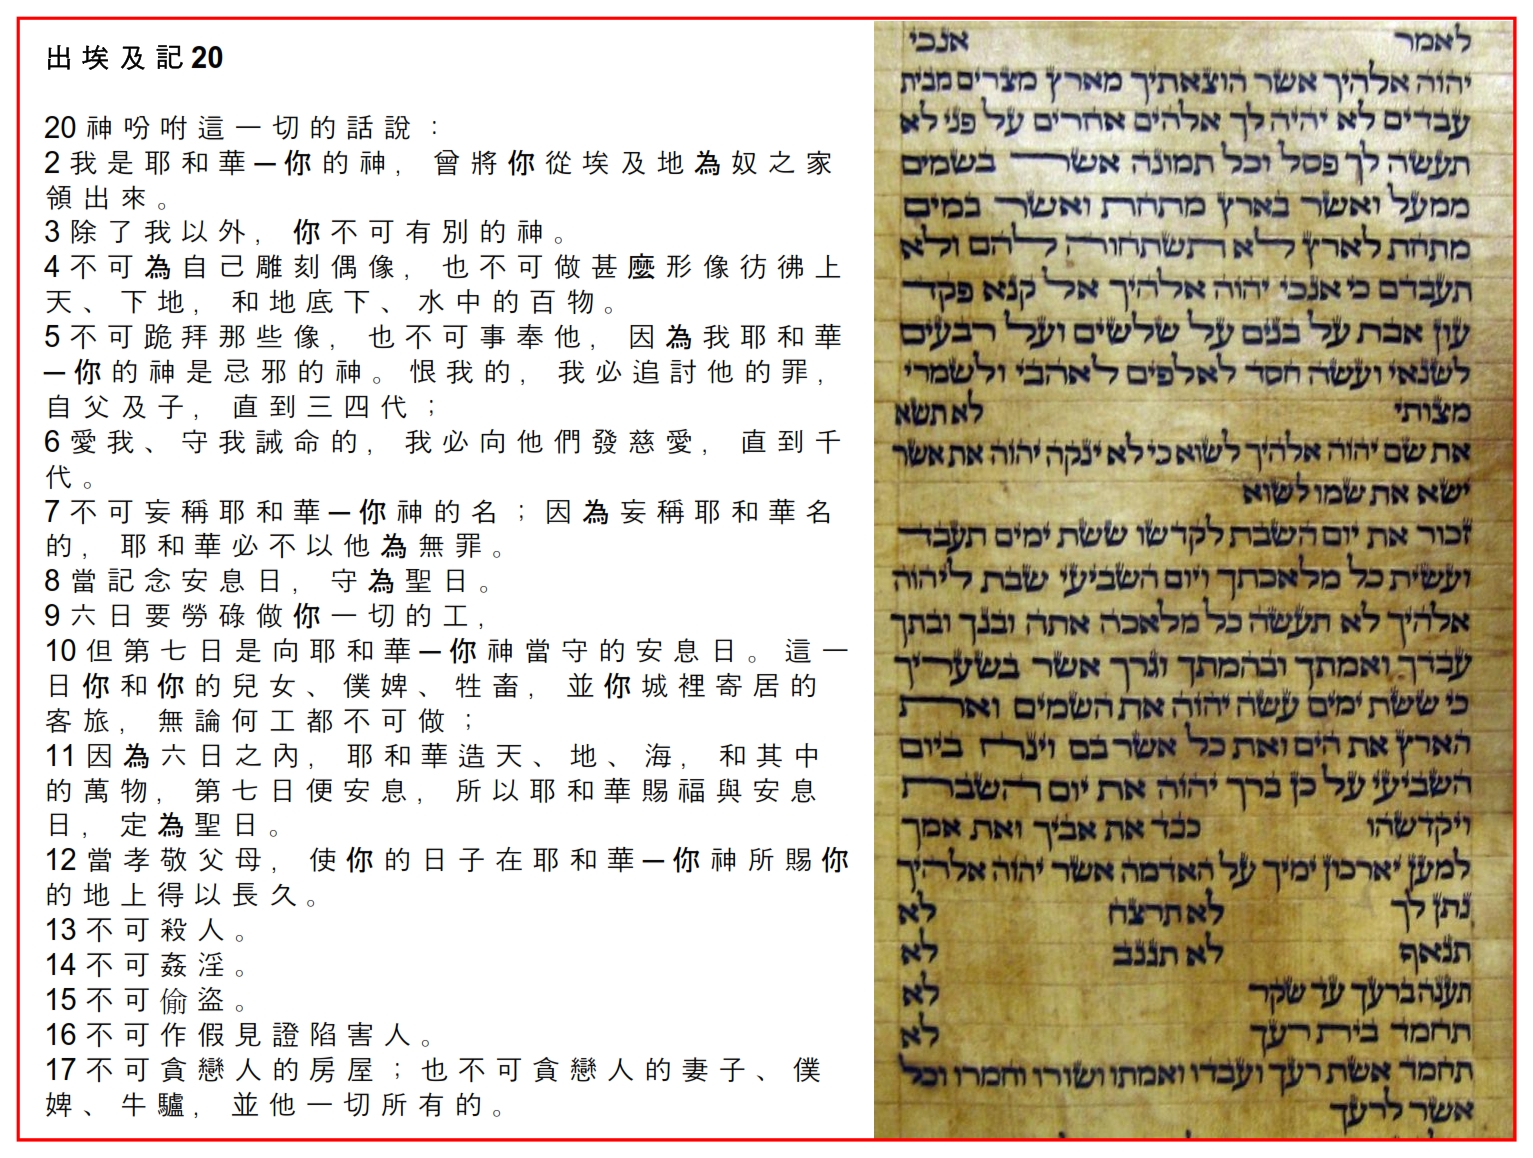 出埃及記20
20神吩咐這一切的話說：
2我是耶和華─你的神，曾將你從埃及地為奴之家
領出來。
3除了我以外，你不可有別的神。
4不可為自己雕刻偶像，也不可做甚麼形像彷彿上
天、下地，和地底下、水中的百物。
5不可跪拜那些像，也不可事奉他，因為我耶和華
─你的神是忌邪的神。恨我的，我必追討他的罪，
自父及子，直到三四代；
6愛我、守我誡命的，我必向他們發慈愛，直到千
代。
7不可妄稱耶和華─你神的名；因為妄稱耶和華名
的，耶和華必不以他為無罪。
8當記念安息日，守為聖日。
9六日要勞碌做你一切的工，
10但第七日是向耶和華─你神當守的安息日。這一
日你和你的兒女、僕婢、牲畜，並你城裡寄居的
客旅，無論何工都不可做；
11因為六日之內，耶和華造天、地、海，和其中
的萬物，第七日便安息，所以耶和華賜福與安息
日，定為聖日。
12當孝敬父母，使你的日子在耶和華─你神所賜你
的地上得以長久。
13不可殺人。
14不可姦淫。
15不可偷盜。
16不可作假見證陷害人。
17不可貪戀人的房屋；也不可貪戀人的妻子、僕
婢、牛驢，並他一切所有的。
לאמר אנכי
יהוה אלהיך אשר הוצאתיך מארץ מצרים מבית
עבדים לא יהיה לך אלהים אחרים על פני לא
תעשה לך פסל וכל תמונה אשר בשמים
ממעל ואשר בארץ מתחת ואשר במים
מתחת לארץ לא תשתחוה להם ולא
תעבדם כי אנכי יהוה אלהיך אל קנא פקד
עון אבת על בנים על שלשים ועל רבעים
לשנאי ועשה חסד לאלפים לאהבי ולשמרי
מצותי לא תשא
את שם יהוה אלהיך לשוא כי לא ינקה יהוה את אשר
ישא את שמו לשוא
זכור את יום השבת לקדשו ששת ימים תעבד
ועשית כל מלאכתך ויום השביעי שבת ליהוה
אלהיך לא תעשה כל מלאכה אתה ובנך ובתך
עבדך ואמתך ובהמתך וגרך אשר בשעריך
כי ששת ימים עשה יהוה את השמים ואת
הארץ את הים ואת כל אשר בם וינח ביום
השביעי על כן ברך יהוה את יום השבת
ויקדשהו כבד את אביך ואת אמך
למען יארכון ימיך על האדמה אשר יהוה אלהיך
נתן לך לא תרצח לא
תנאף לא תגנב לא
תענה ברעך עד שקר לא
תחמד בית רעך לא
תחמד אשת רעך ועבדו ואמתו ושורו וחמרו וכל
אשר לרעך